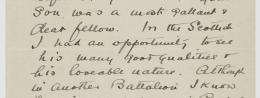 Son was a most gallant &
dear fellow. In the Scottish
I had an opportunity to see
his many good qualities &
his loveable nature. Although
in another Battalion I know